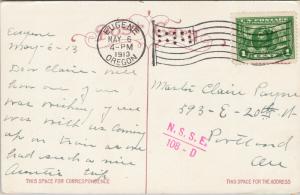 Eugene
May-6-13
Dear Claire - Will
how one of us
was wishing you
was with us coming
up on train as we
had such a nice
Auntie
EUGENE
MAY 6
4-PM
1913
OREGON
U.S. POSTAGE
1 CENT 1
Master Claire Payne
593-E-20th N
Portland
Ore
N. S. S. E.
108 - D
THIS SPACE FOR CORRESPONDENCE
THIS SPACE FOR ADDRESS